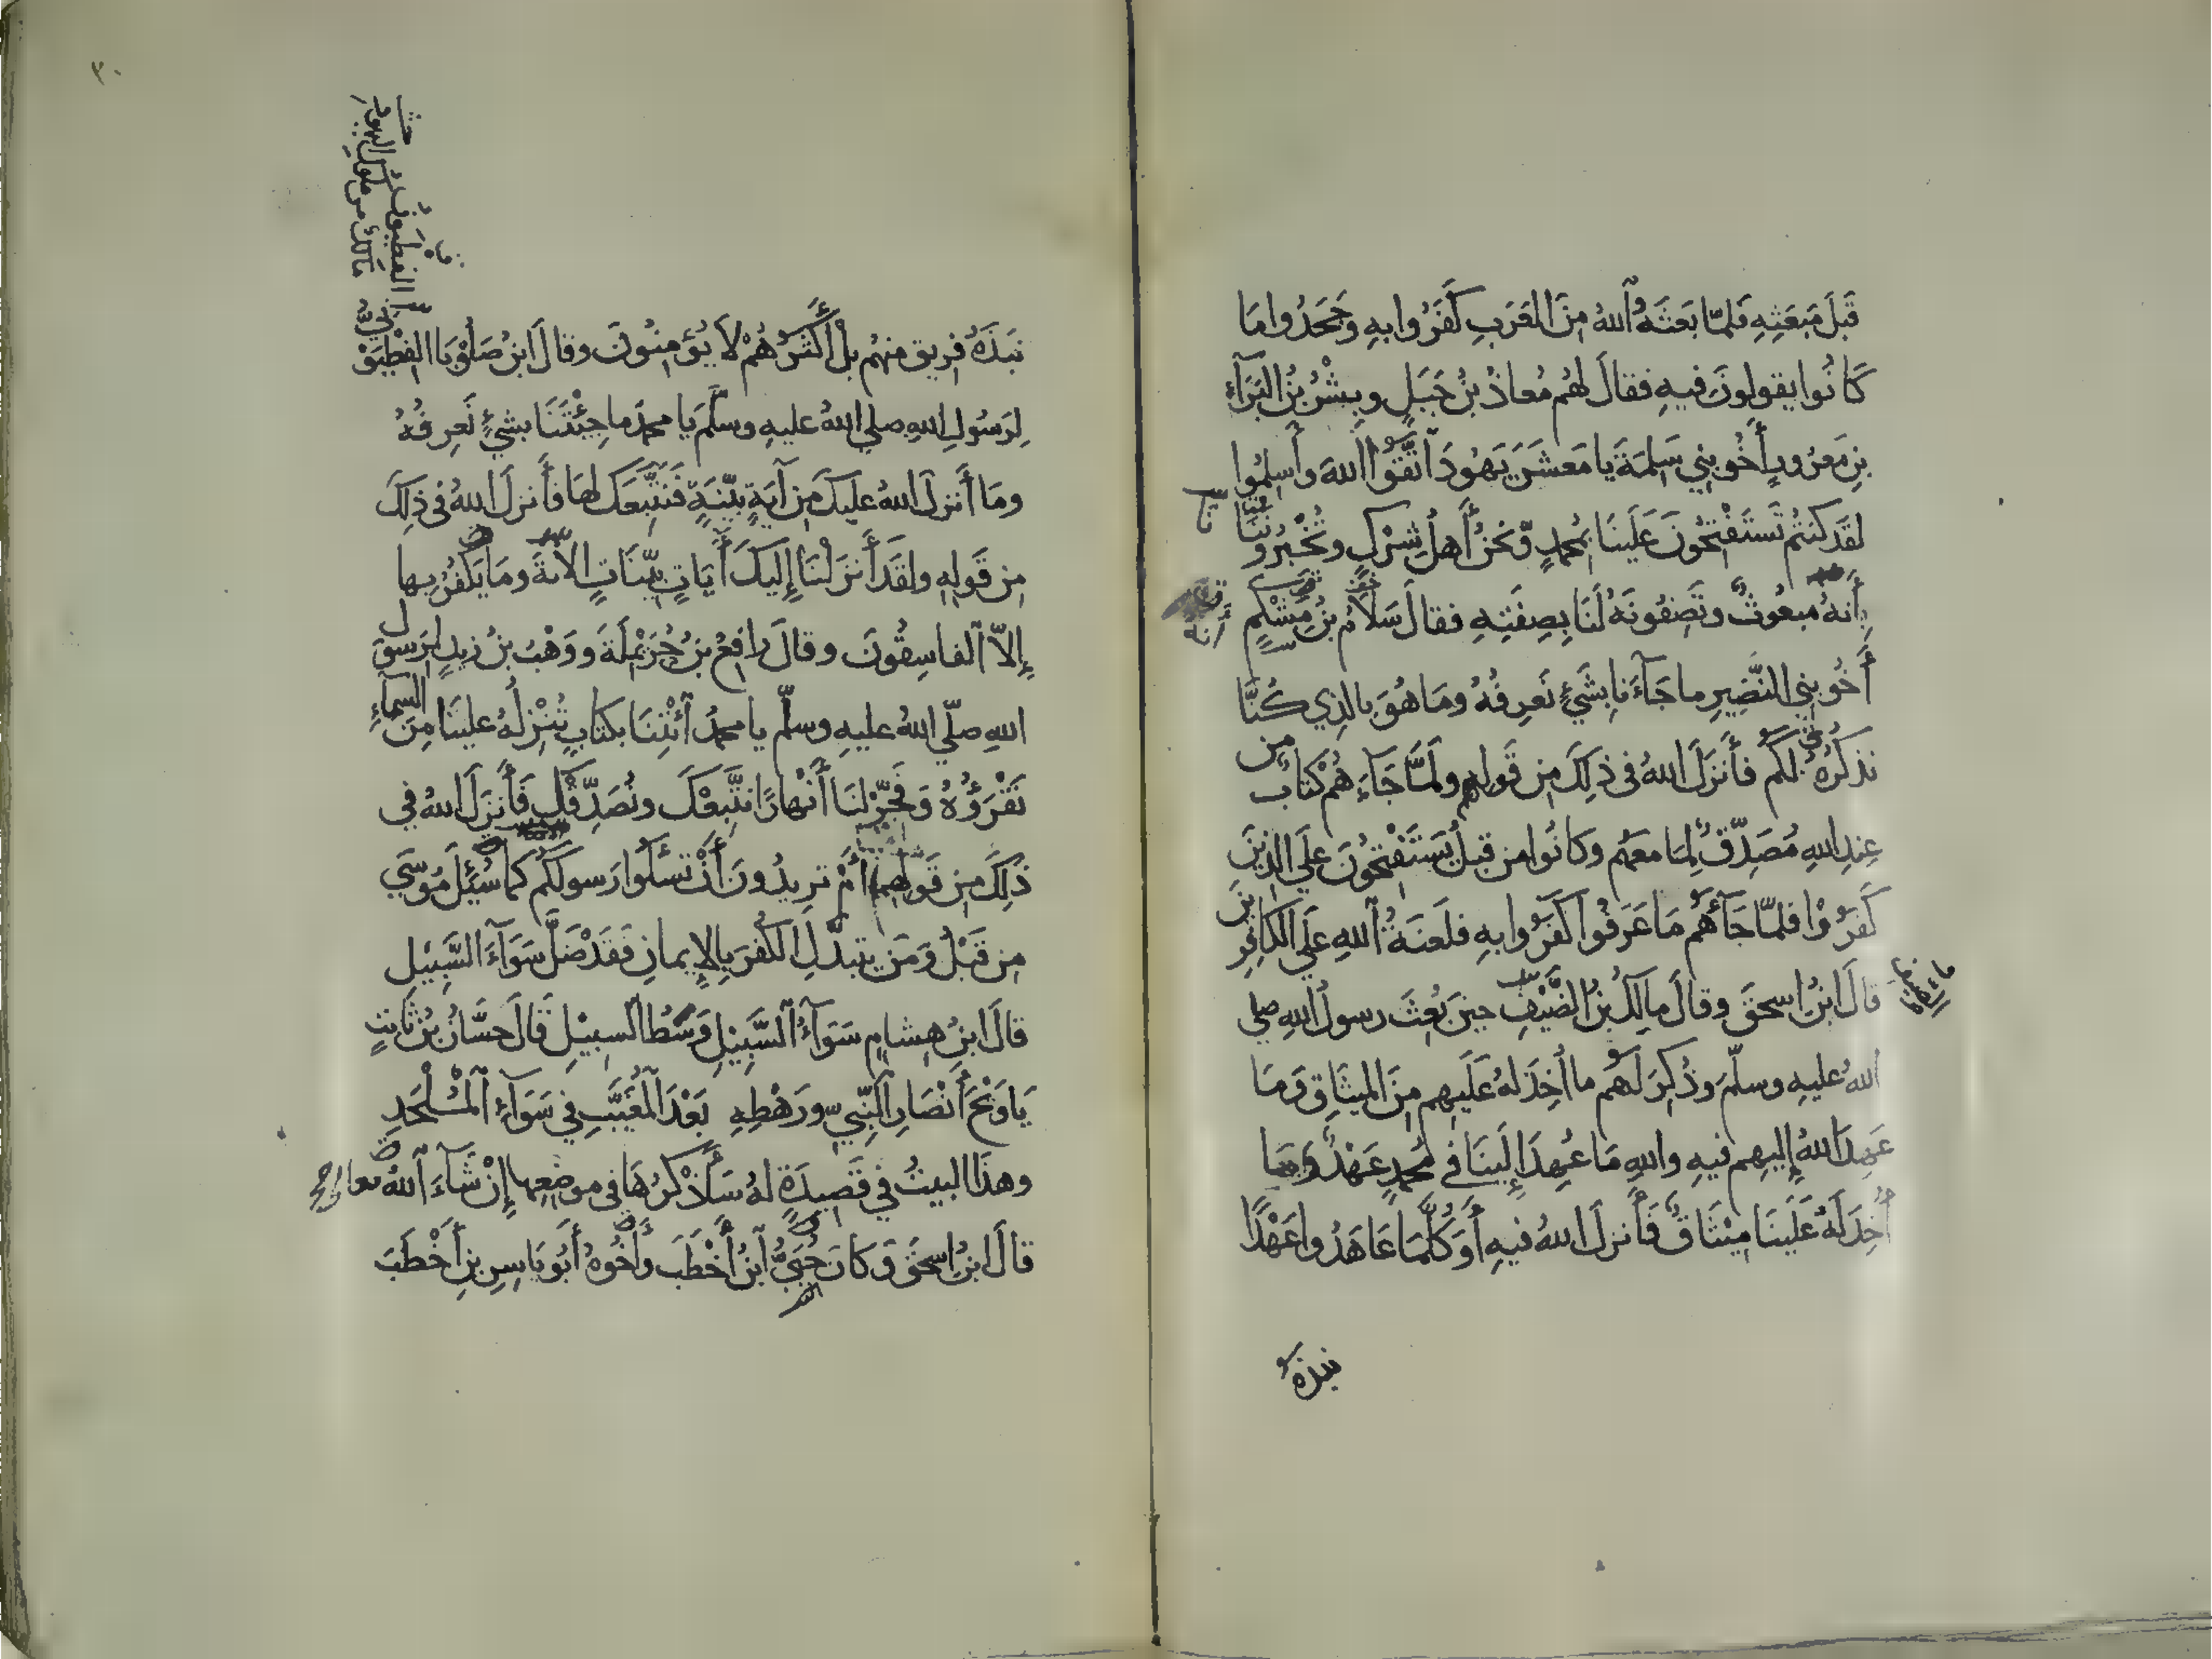 قَبْلَ مَبْعَثِهِ فَلَمَّا بَعَثَهُ ٱللهُ مِنَ العَرَبِ كَفَرُوا بِهِ وَجَحَدُوا مَا
كَانُوا يقولونَ فيهِ فقالَ لهُم مُعاذُ بنُ جَبَلٍ وبِشْرُ بنُ البَرَآءِ
بنِ مَعرُورٍ أَخُو بني سَلِمَةَ يا مَعشَرَ يَهُودَ ٱتَّقُوا اللهَ وأَسلِمُوا
لقَد كنتُم تَستَفْتِحُونَ عَلَينَا بمُحمدٍ وَنَحنُ أَهلُ شِرْكٍ وتُخْبِرُونَنَا
بِأَنهُ مبعُوثٌ وتَصِفُونَهُ لَنَا بِصِفَتِهِ فقالَ سَلاَمُ بنُ مِشْكمٍ
أَخُو بني النَّضِيرِ ما جَآءَنا بِشَيْءٍ نَعرِفُهُ ومَا هُوَ بالذِي كُنَّا
نَذكُرُهُ لَكُم فأَنزَلَ اللهُ في ذلكَ مِن قَولِهِم ولَمَّا جَآءَهُم كتابٌ مِن
عِندِ اللهِ مُصَدِّقٌ لِمَا معَهُم وكَانُوا من قبلُ يَسْتَفْتِحُونَ علَي الذينَ
كَفَرُوْا فلمَّا جَآءَهُم مَا عَرَفُوا كَفَرُوا بِهِ فلَعنَةُ ٱللهِ علَي الكافِرِينَ
قالَ ابنُ اسحقَ وقالَ مالكُ بنُ الضَّيْفِ حينَ بُعِثَ رسولُ اللهِ صلي
اللهُ عليهِ وسلّمَ وذُكِرَ لَهُم ما أُخِذَ لهُ عَلَيهِم مِنَ الميثَاقِ وَمَا
عَهِدَ اللهُ إِليهِم فيهِ واللهِ مَا عُهِدَ إِلَينَا في مُحمدٍ عَهْدٌ وَمَا
أُخِذَ لَهُ عَلَينَا مِيْثَاقٌ فَأَنزلَ اللهُ فيهِ أَوَكُلَّمَا عَاهَدُوا عَهْدًا
نبذهُ
٣٠
الفطيون
مالك من ملوك اليهود
نَبَذَهُ فريق منهُم بلْ أَكْثَرُهُمْ لاَ يُؤمِنُونَ وقالَ ابنُ صَلُوْبَا الفِطْيَوْنِيُّ
لِرَسُولِ اللهِ صلي اللهُ عليهِ وسلَّمَ يا محمدُ ما جِئْتَنَا بشيْءٍ نَعرِفُهُ
ومَا أَنزلَ اللهُ عليكَ مِن آيَةٍ بيّنَةٍ فَنَتَّبِعَكَ لهَا فأَنزلَ اللهُ في ذلكَ
مِن قَولِهِ ولقَد أَنزَلْنَا إِليكَ أَيَاتٍ بيّنَاتٍ الآية ومَا يَكفُرُ بِها
إِلاَّ ٱلفاسِقُونَ وقالَ رافعُ بنُ حُرَيْمِلَةَ ووَهْبُ بنُ زيدٍ لرَسولِ
اللهِ صلّي اللهُ عليهِ وسلّم يا محمدُ آئْتِنَا بكتابٍ تُنْزِلُهُ علينَا مِنَ السماءِ
نَقْرَؤُهُ وَفَجِّرْ لنَا أَنْهارًا نتَّبِعْكَ ونُصَدِّقْكَ فَأَنزلَ اللهُ في
ذلكَ مِن قَولِهِمَا أَمْ تريدُونَ أَنْ تَسْأَلُوا رَسولَكُم كمَا سُئِلَ مُوسَي
مِن قَبْلُ وَمَن يتبدَّلِ الكُفرَ بِالإِيمانِ فَقَدْ ضَلَّ سَوَآءَ السَّبِيْلِ
قالَ ابنُ هِشامٍ سَوَآءُ ٱلسَّبِيْلِ وَسْطُ السبِيْلِ قَالَ حسَّانُ بنُ ثَابتٍ
يَا وَيْحَ أَنْصَارِ ٱلنَّبِيِّ ورَهْطِهِ بَعْدَ ٱلْمُغَيَّبِ في سَوَآءِ ٱلْمُلْحَدِ
وهذَا البيتُ في قَصِيدَةٍ لهُ سَأَذْكرُهَا في موضعِها إِنْ شَآءَ ٱللهُ تعالي
قالَ ابنُ اسحقَ وَكَانَ حُيَيُّ ٱبنُ أَخْطَبَ وَأَخُوهُ أَبُو يَاسِرِ بنِ أَخْطَبَ